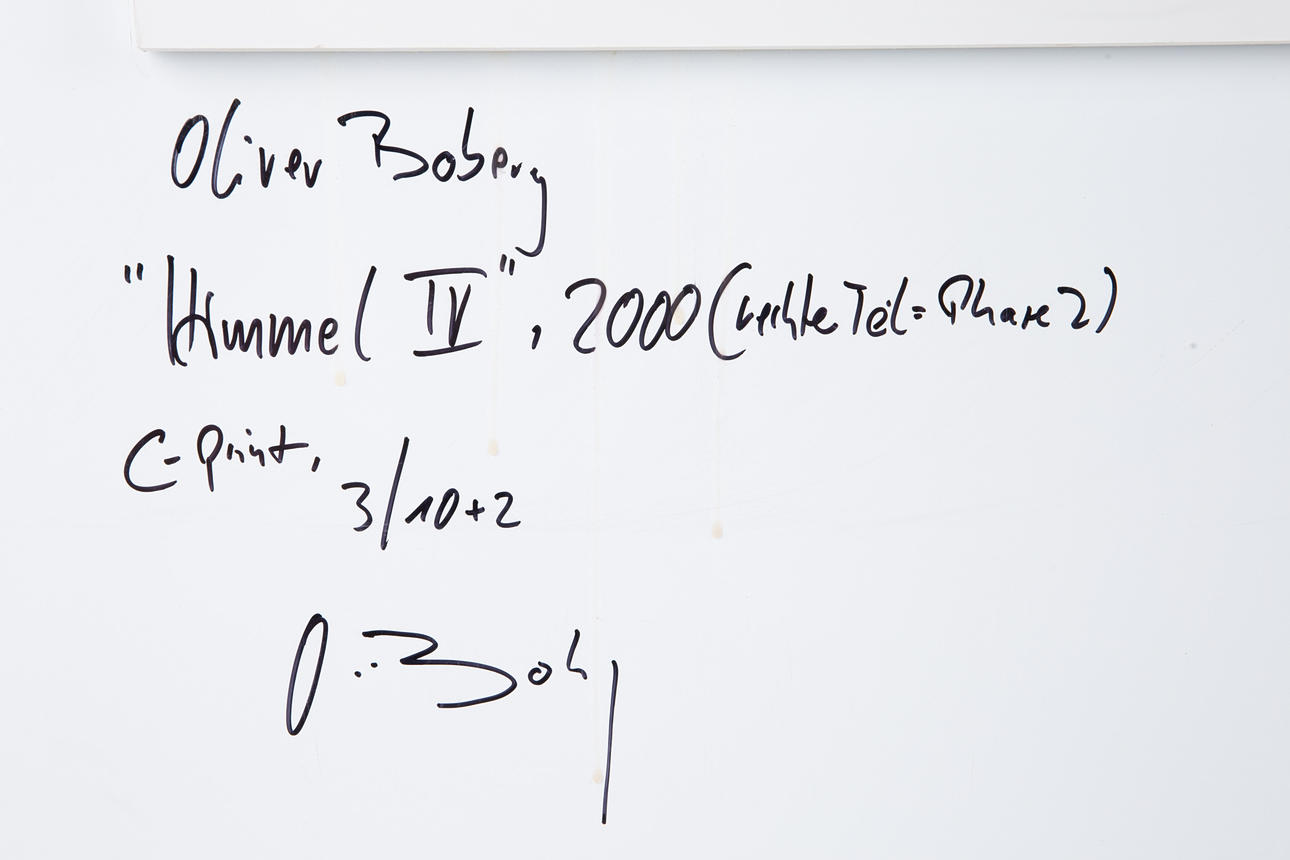 Oliver Boberg
"Himmel IV", 2000 (rechte Teil = Phase 2)
C-Print,
3/10+2